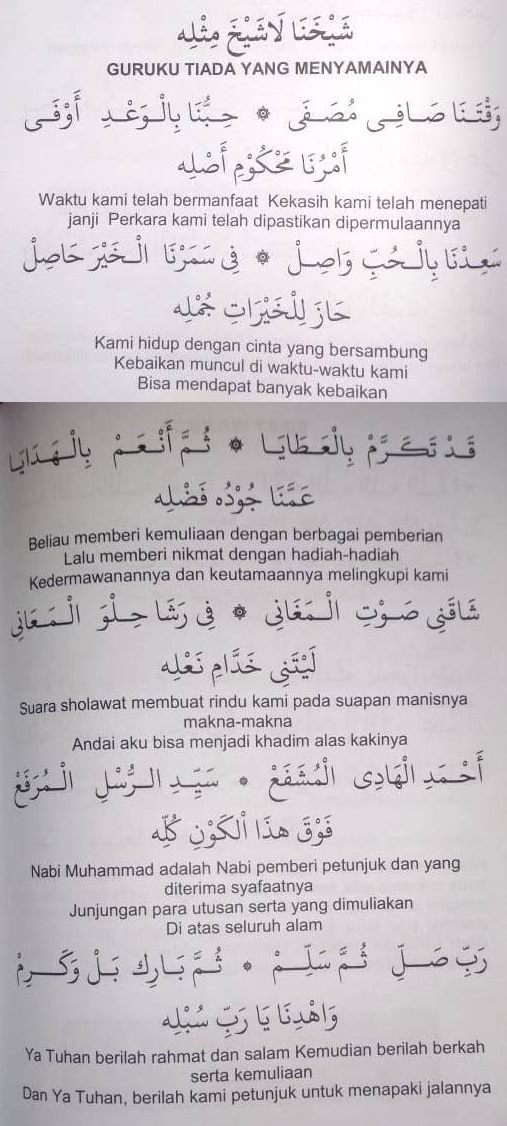 شَيْخَنَا لَاشَيْخَ مِثْلِه
GURUKU TIADA YANG MENYAMAINYA
وَقْتَنَا صَافِي مُصَفَّى ۞ حِبُّنَا بِالْوَعْدِ أَوْفَى
أَمْرُنَا مَحْكُومِ أَصْلِه
Waktu kami telah bermanfaat Kekasih kami telah menepati
janji Perkara kami telah dipastikan dipermulaannya
سَعِدْنَا بِالْحُبِّ وَاصِلْ ۞ فِى سَمَرْنَا الْخَيْرَ حَاصِلْ
حَازَ لِلْخَيْرَاتِ جُمْلِه
Kami hidup dengan cinta yang bersambung
Kebaikan muncul di waktu-waktu kami
Bisa mendapat banyak kebaikan
قَدْ تَكَرَّمْ بِالْعَطَايَا ۞ ثُمَّ أَنْعَمْ بِالْهَدَايَا
عَمَّنَا جُوْدُه فَضْلِه
Beliau memberi kemuliaan dengan berbagai pemberian
Lalu memberi nikmat dengan hadiah-hadiah
Kedermawanannya dan keutamaannya melingkupi kami
شَاقَنِي صَوْتِ الْمَغَانِي ۞ فِى رَشَا حِلْوَ الْمَعَانِي
لَيْتَنِي خَدَّامِ نَعْلِه
Suara sholawat membuat rindu kami pada suapan manisnya
makna-makna
Andai aku bisa menjadi khadim alas kakinya
أَحْمَدِ الْهَادِى الْمُشَفَّعْ ۞ سَيِّدِ الرُّسْلِ الْمُرَفَّعْ
فَوْقَ هذَا الْكَوْنِ كُلِّه
Nabi Muhammad adalah Nabi pemberi petunjuk dan yang
diterima syafaatnya
Junjungan para utusan serta yang dimuliakan
Di atas seluruh alam
رَبِّ صَلِّ ثُمَّ سَلِّمْ ۞ ثُمَّ بَارِك بَلْ وَكَرِمْ
وَاهْدِنَا يَا رَبِّ سُبْلِه
Ya Tuhan berilah rahmat dan salam Kemudian berilah berkah
serta kemuliaan
Dan Ya Tuhan, berilah kami petunjuk untuk menapaki jalannya